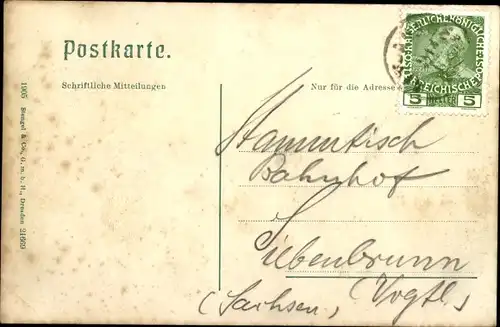 Postkarte.
Schriftliche Mitteilungen
Nur für die Adresse
KAISERLICHE KÖNIGLICHE
ÖSTERREICHISCHE POST
5 HELLER 5
Stammtisch
Bahnhof
Siebenbrunn
(Sachsen, (Vogtl.)
1905 Stengel & Co., G. m. b. H., Dresden 21669